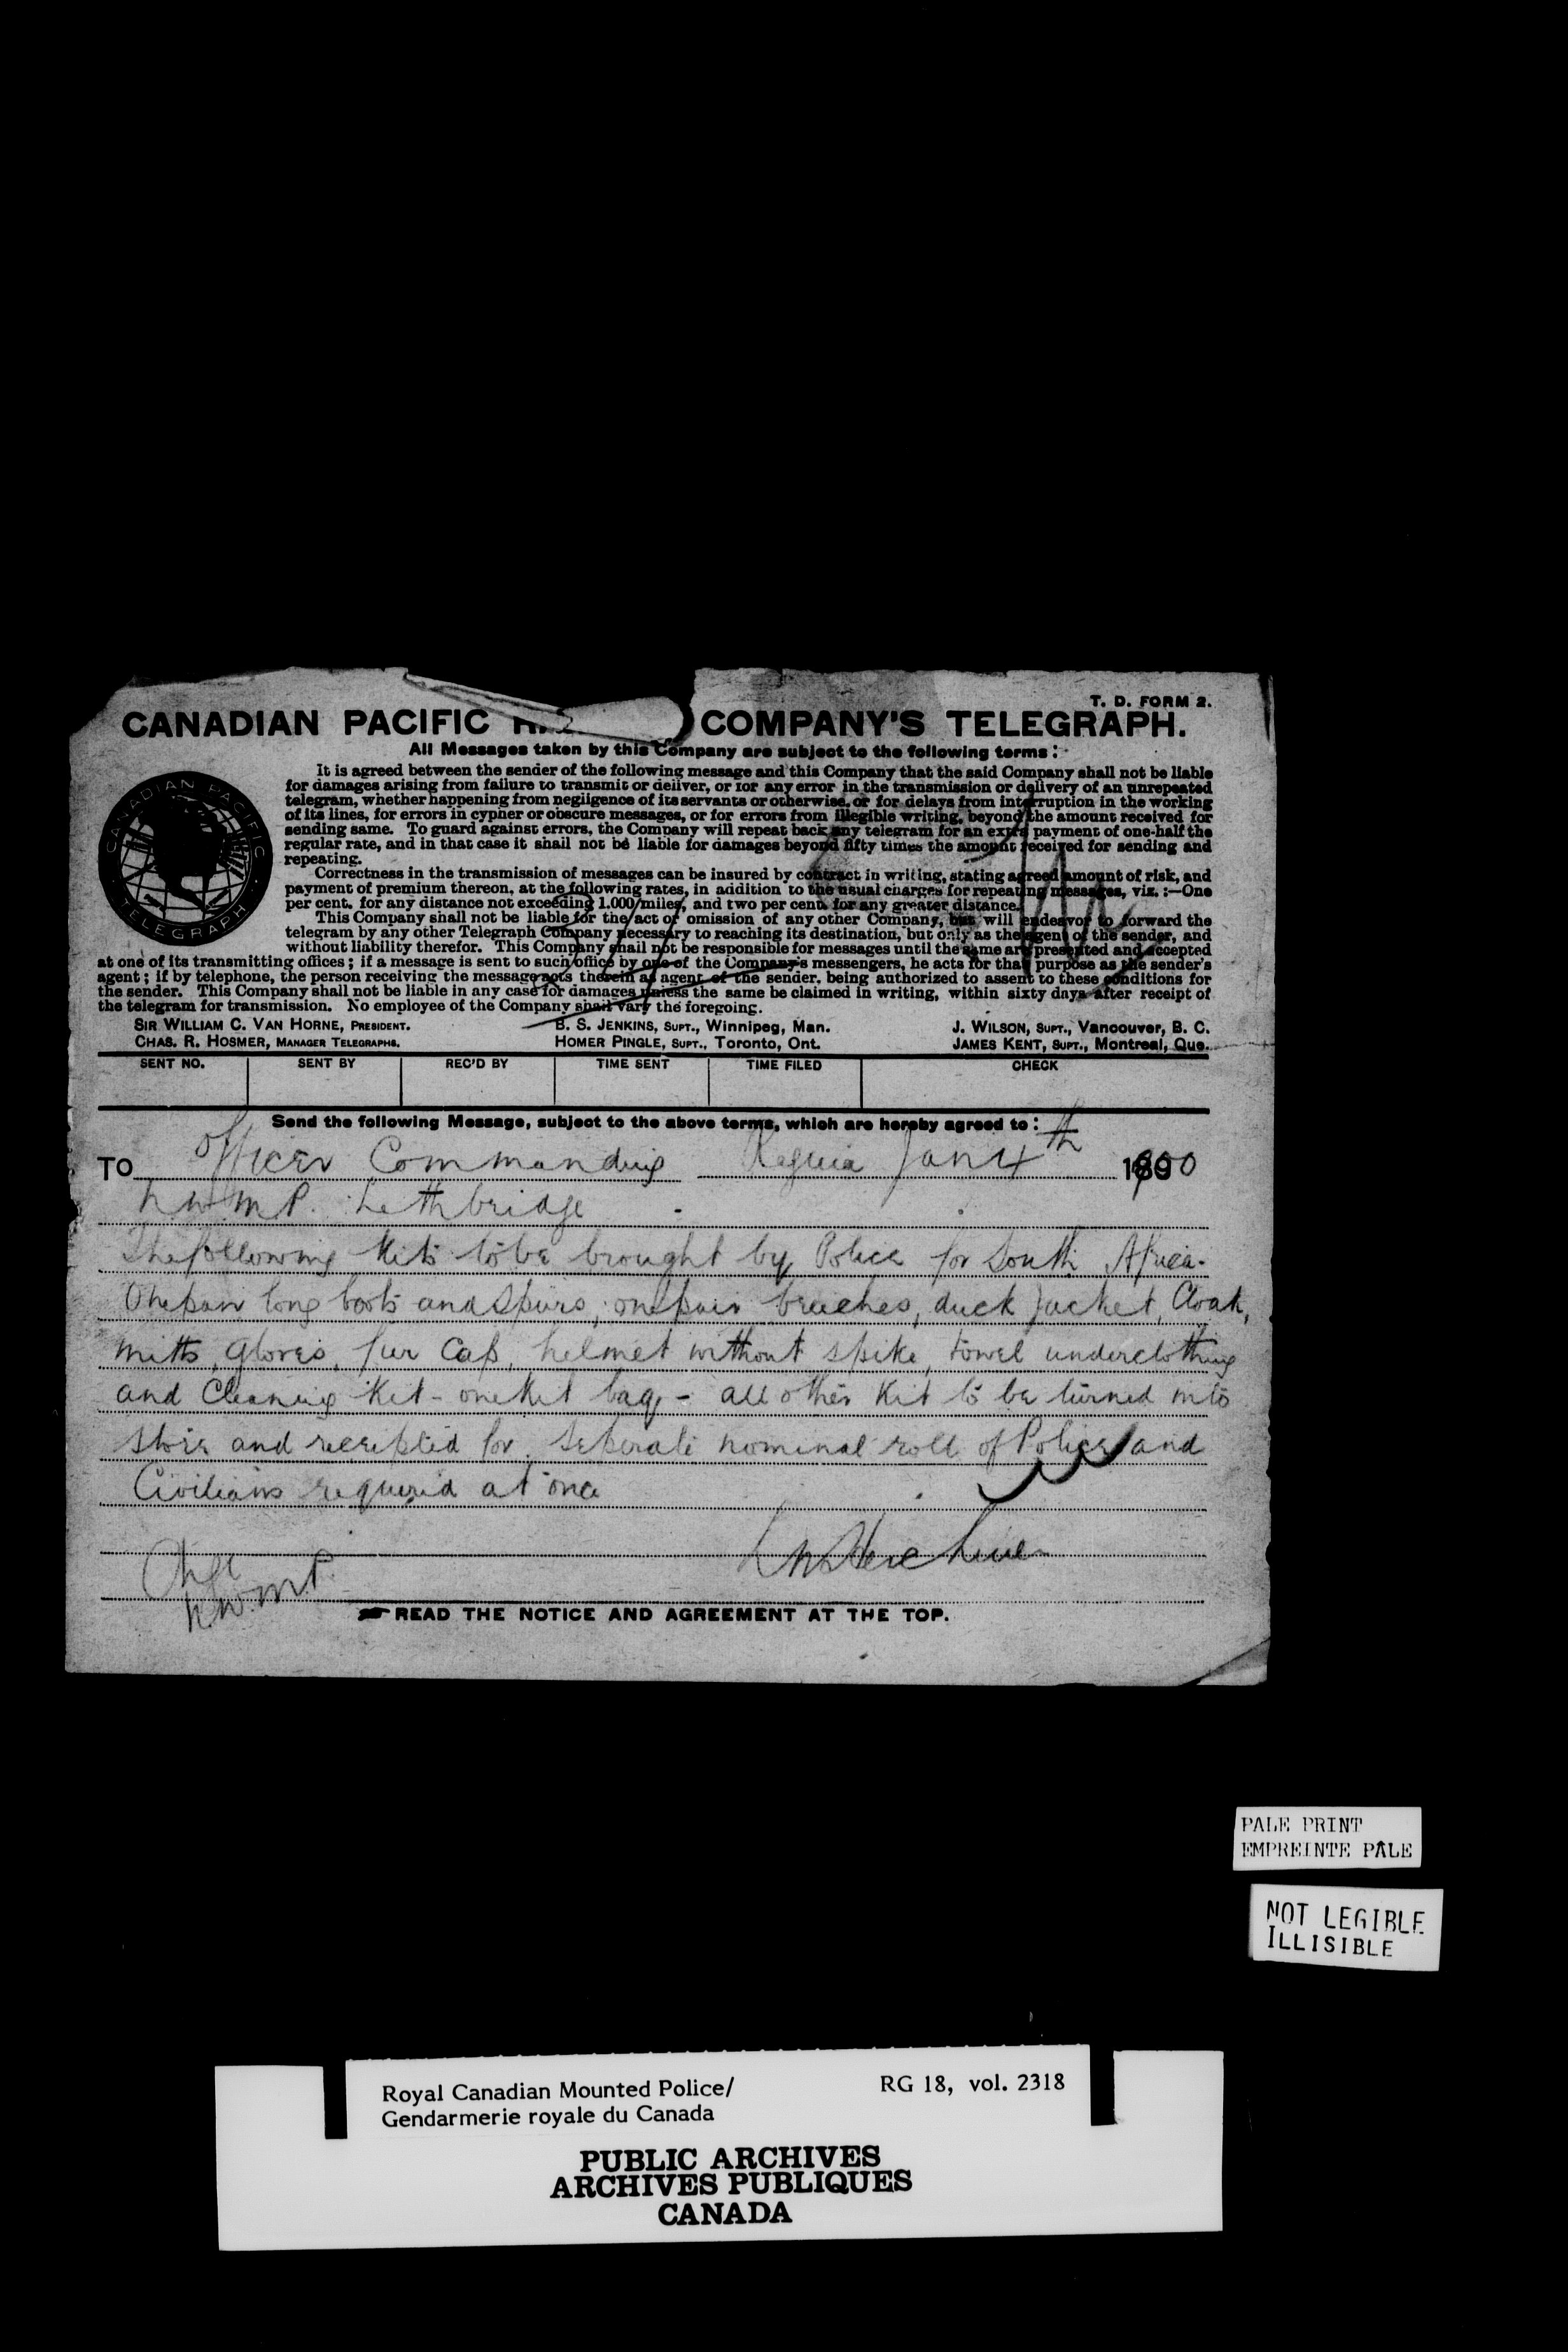 T. D. FORM 2.
CANADIAN PACIFIC COMPANY'S TELEGRAPH.
All Messages taken by this Company are subject to the following terms:
CANADIAN PACIFIC
TELEGRAPH
It is agreed between the sender of the following message and this Company that the said Company shall not be liable
for damages arising from failure to transmit or deliver, or for any error in the transmission or delivery of an unrepeated
telegram, whether happening from negligence of its servants or otherwise, or for delays from interruption in the working
of its lines, for errors in cypher or obscure messages, or for errors from illegible writing, beyond the amount received for
sending same. To guard against errors, the Company will repeat back any telegram for an extra payment of one-half the
regular rate, and in that case it shall not be liable for damages beyond fifty times the amount received for sending and
repeating.
Correctness in the transmission of messages can be insured by contract in writing, stating agreed amount of risk, and
payment of premium thereon, at the following rates, in addition to the usual charges for repeating messages, viz. :—One
per cent. for any distance not exceeding 1,000 miles, and two per cent. for any greater distance.
This Company shall not be liable for the act or omission of any other Company, but will endeavor to forward the
telegram by any other Telegraph Company necessary to reaching its destination, but only as the agent of the sender, and
without liability therefor. This Company shall not be responsible for messages until the same are presented and accepted
at one of its transmitting offices; if a message is sent to such office by one of the Company's messengers, he acts for that purpose as the sender's
agent; if by telephone, the person receiving the message acts therein as agent of the sender, being authorized to assent to these conditions for
the sender. This Company shall not be liable in any case for damages unless the same be claimed in writing, within sixty days after receipt of
the telegram for transmission. No employee of the Company shall vary the foregoing.
SIR WILLIAM C. VAN HORNE, PRESIDENT. B. S. JENKINS, SUPT., Winnipeg, Man. J. WILSON, SUPT., Vancouver, B. C.
CHAS. R. HOSMER, MANAGER TELEGRAPHS. HOMER PINGLE, SUPT., Toronto, Ont. JAMES KENT, SUPT., Montreal, Que.
SENT NO. SENT BY REC'D BY TIME SENT TIME FILED CHECK
Send the following Message, subject to the above terms, which are hereby agreed to:
TO Officer Commanding Regina Jan 4th 1900
N.W.M.P. Lethbridge
The following Kits to be brought by Police for South Africa.
One pair long boots and Spurs, one pair breeches, duck Jacket, Cloak,
Mitts, gloves, fur Cap, helmet without spike, towel underclothing
and Cleaning Kit - one Kit bag - all other Kit to be turned into
store and receipted for. Seperate nominal roll of Police and
Civilians required at once
L W Herchmer
N.W.M.P.
READ THE NOTICE AND AGREEMENT AT THE TOP.
PALE PRINT
EMPREINTE PÂLE
NOT LEGIBLE
ILLISIBLE
Royal Canadian Mounted Police/ RG 18, vol. 2318
Gendarmerie royale du Canada
PUBLIC ARCHIVES
ARCHIVES PUBLIQUES
CANADA